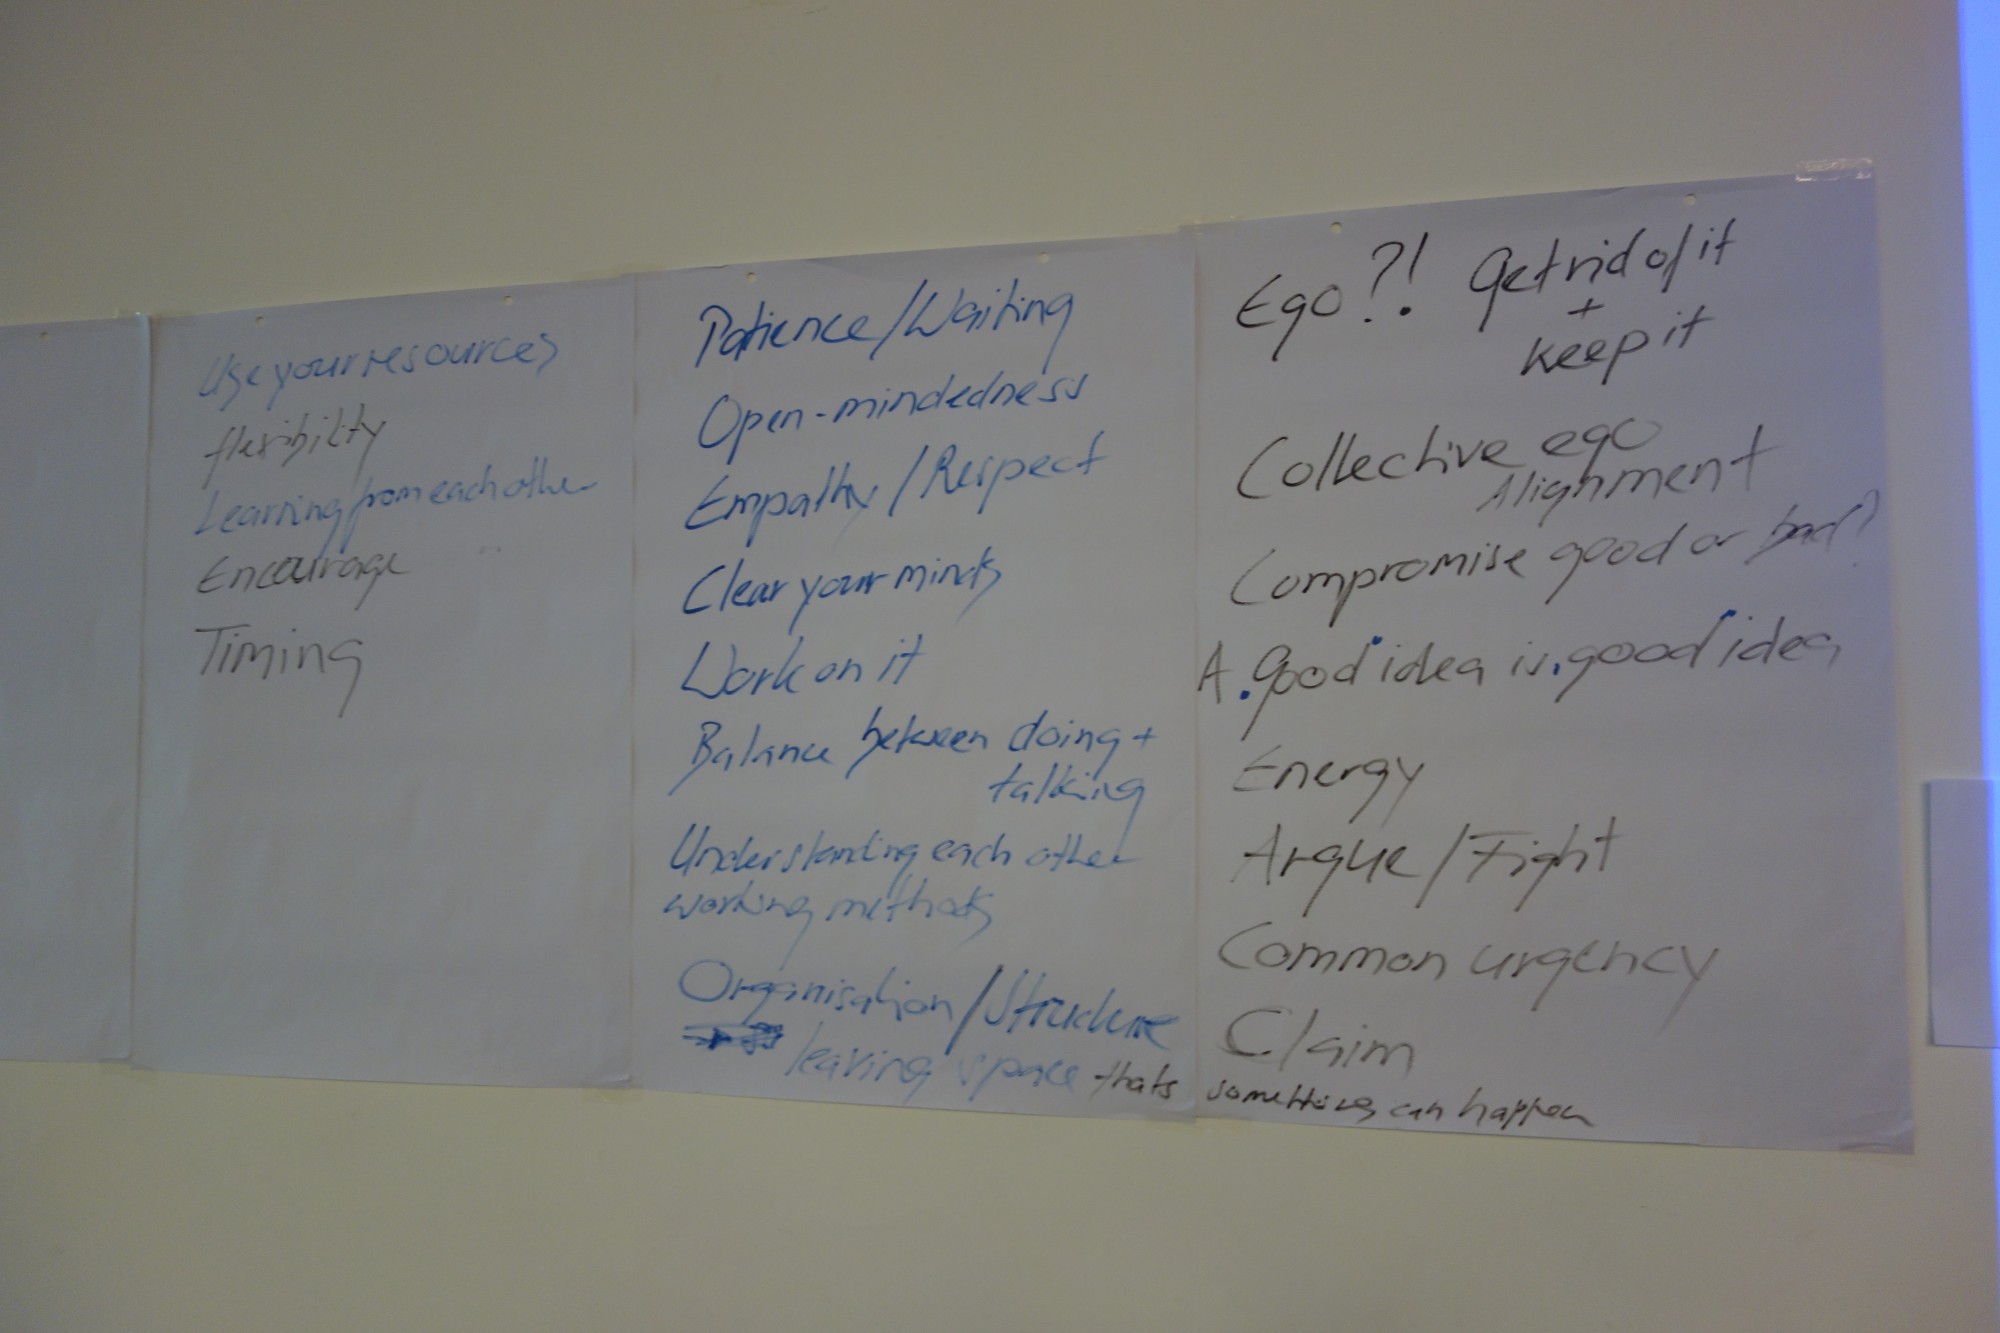 Use your resources
flexibility
Learning from each other
Encourage
Timing
Patience/Waiting
Open-mindedness
Empathy/Respect
Clear your minds
Work on it
Balance between doing +
talking
Understanding each other
working methods
Organisation/Structure
leaving space thats somethings can happen
Ego?! Get rid of it
+
keep it
Collective ego
Alignment
Compromise good or bad?
A "good" idea is "good" idea
Energy
Argue/Fight
Common urgency
Claim